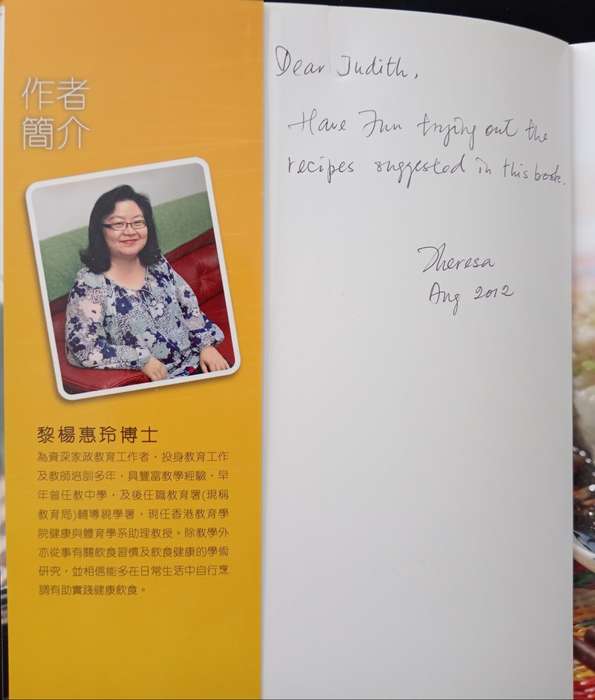 作者
簡介
黎楊惠玲博士
為資深家政教育工作者，投身教育工作
及教師培訓多年，具豐富教學經驗，早
年曾任教中學，及後任職教育署(現稱
教育局)輔導視學署，現任香港教育學
院健康與體育學系助理教授。除教學外
亦從事有關飲食習慣及飲食健康的學術
研究，並相信能多在日常生活中自行烹
調有助實踐健康飲食。
Dear Judith,
Have Fun trying out the
recipes suggested in this book.
Theresa
Aug 2012